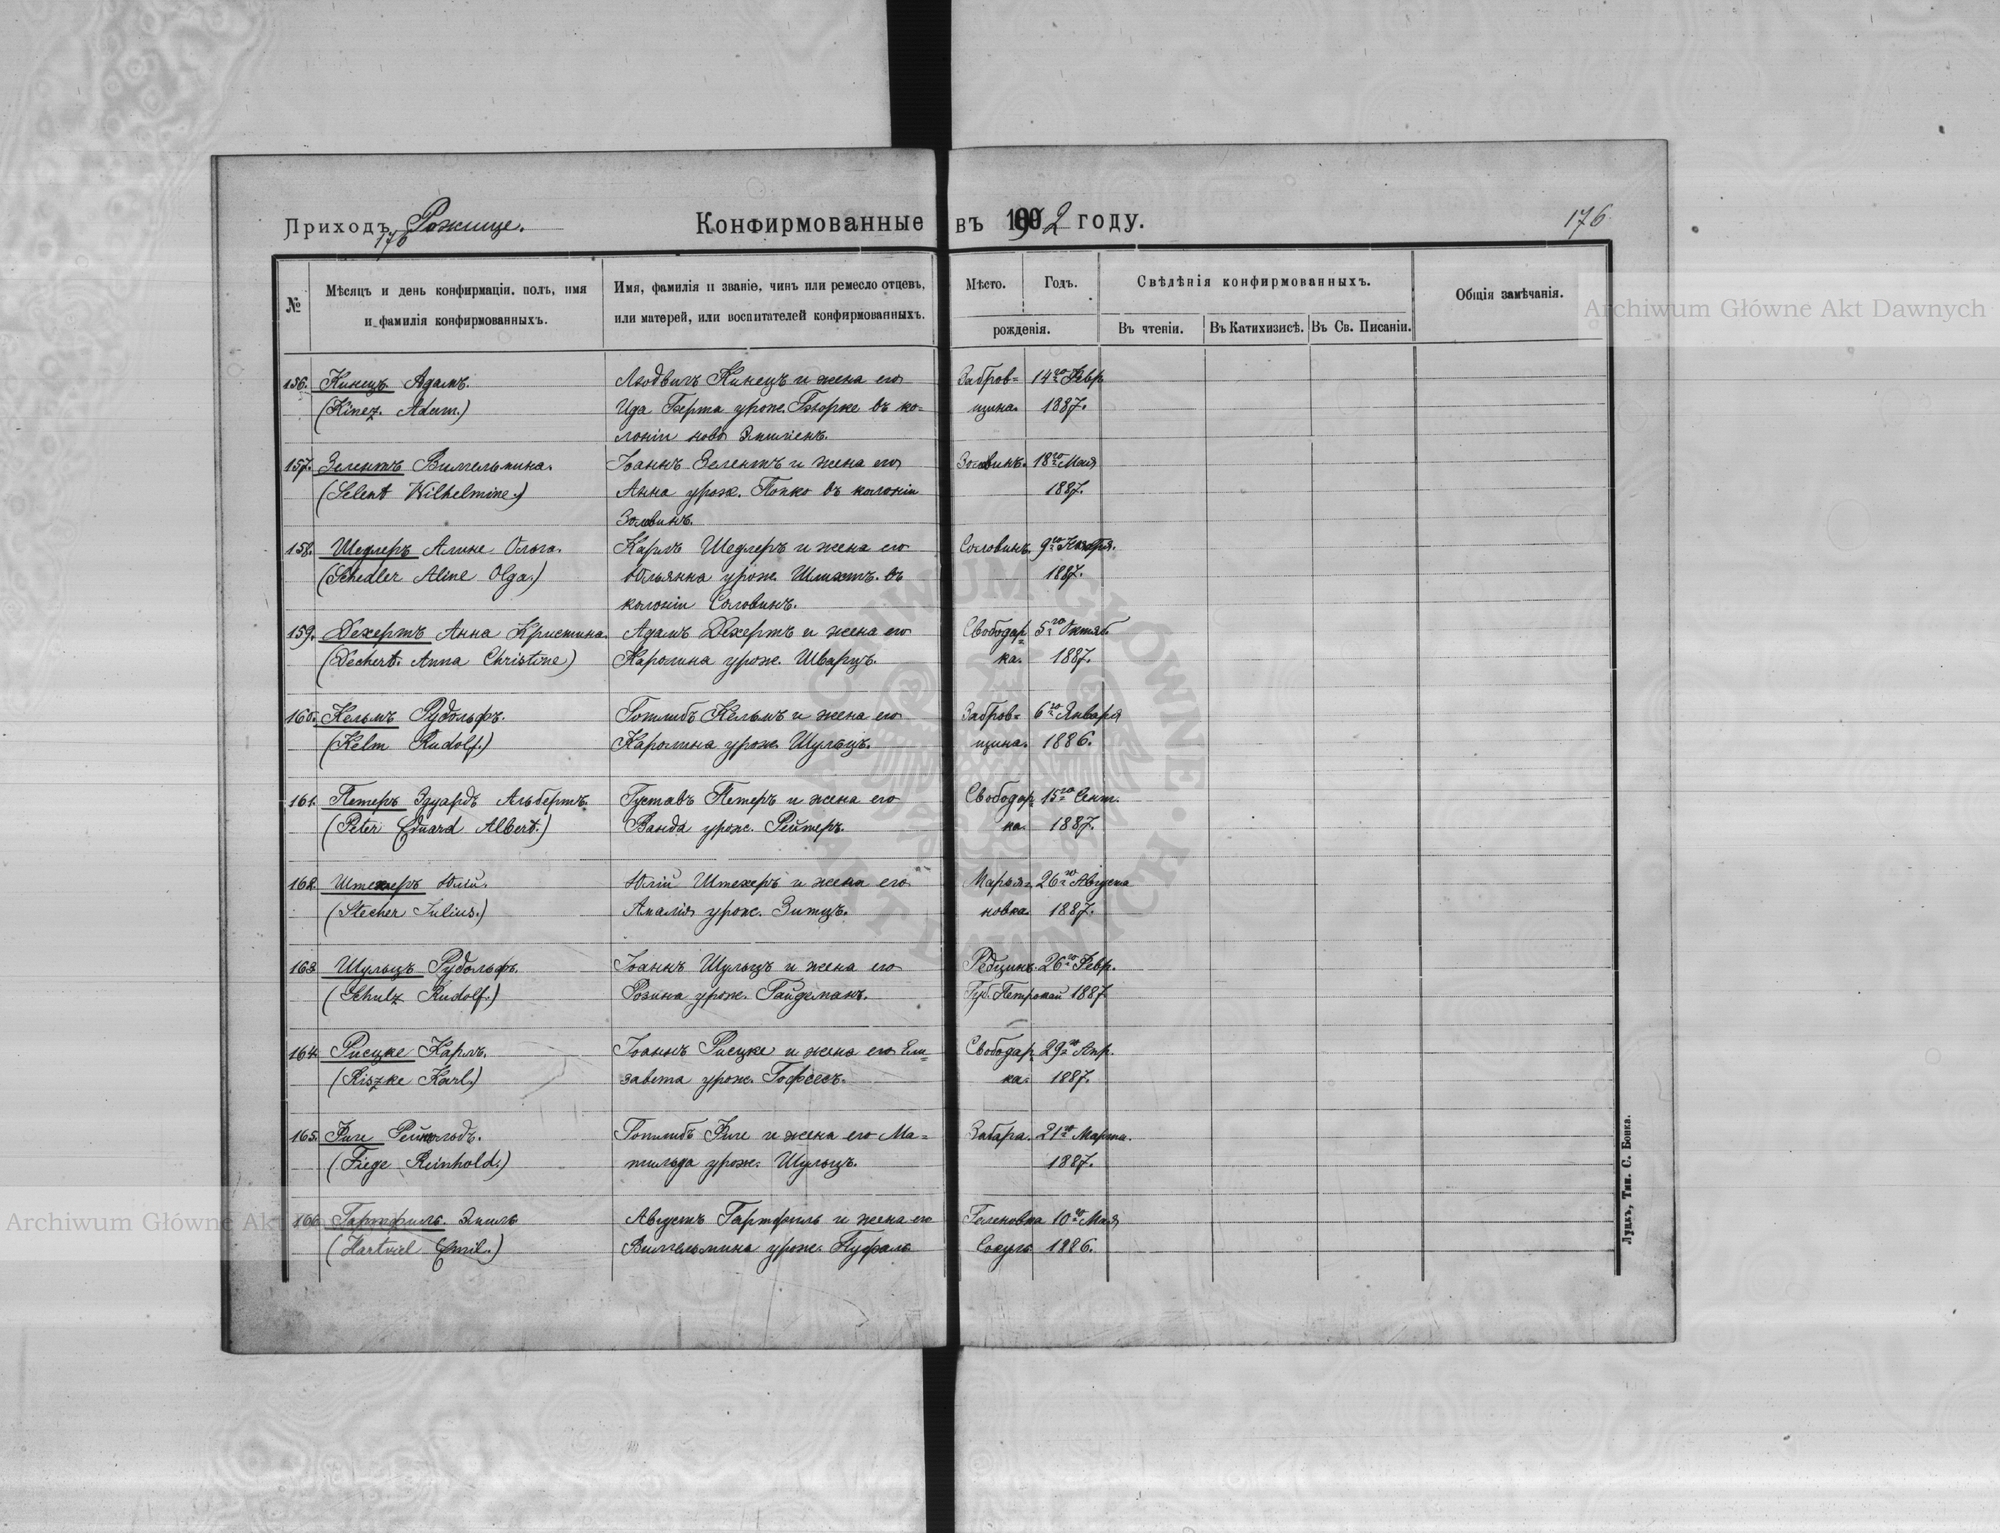 Приходъ Рожище.
176
Конфирмованные въ 1902 году.
176
№
Мѣсяцъ и день конфирмаціи, полъ, имя
и фамилія конфирмованныхъ.
Имя, фамилія и званіе, чинъ или ремесло отцевъ,
или матерей, или воспитателей конфирмованныхъ.
Мѣсто. Годъ.
рожденія.
Свѣдѣнія конфирмованныхъ.
Въ чтеніи. Въ Катихизисѣ. Въ Св. Писаніи.
Общія замѣчанія.
156. Кинецъ Адамъ. Людвигъ Кинецъ и жена его Забров= 14го Февр
(Kinez Adam.) Ида Берта урож. Бюрке въ ко= щина. 1887.
лоніи ново
157. Зелентъ Вильгельмина. Іоаннъ Зелентъ и жена его 18го Мая
(Selent Wilhelmine.) Анна урож. Попко въ колоніи 1887.
158. Шедлеръ Алине Ольга. Карлъ Шедлеръ и жена его Соловинъ. 9го Ноября.
(Schedler Aline Olga.) Юльянна урож. Шлихтъ. въ 1887.
колоніи Соловинъ.
159. Дехертъ Анна Кристина. Адамъ Дехертъ и жена его Свободар= 5го Октяб
(Dechert Anna Christine) Каролина урож. Шварцъ. ка. 1887.
160. Кельмъ Рудольфъ. Готлибъ Кельмъ и жена его Забров= 6го Января
(Kelm Rudolf.) Каролина урож. Шульцъ. щина. 1886.
161. Петеръ Эдуардъ Альбертъ. Густавъ Петеръ и жена его Свободар 15го Сент.
(Peter Eduard Albert.) Ванда урож. Рейтеръ. ка. 1887.
162. Штехеръ Юлій. Юлій Штехеръ и жена его Марья= 26го Августа
(Stecher Julius.) Амалія урож. Зитцъ. новка. 1887.
163 Шульцъ Рудольфъ. Іоаннъ Шульцъ и жена его 26го Февр.
(Schulz Rudolf.) Розина урож. Райдеманъ. Губ. 1887.
164. Рисцке Карлъ. Іоаннъ Рисцке и жена его Ели= Свободар 29го Апр.
(Riszke Karl.) завета урож. ка. 1887.
165. Фиге Рейнгольдъ. Готлибъ Фиге и жена его Ма= Забара. 21го Марта.
(Fiege Reinhold.) тильда урож. Шульцъ. 1887.
166 Гартфиль. Эмиль Августъ Гартфиль и жена его Геленовка 10го Мая
(Hartviel Emil.) Вильгельмина урож. Пуфаль 1886.
Луцкъ, Тип. С. Бонка.
Archiwum Główne Akt Dawnych
Archiwum Główne Akt
ARCHIWUM GŁÓWNE • AKT DAWNYCH •